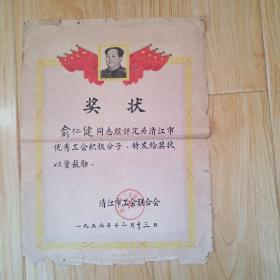 奖状
俞仁健同志经评定为清江市
优秀工会积极分子，特发给奖状
以资鼓励。
清江市工会联合会
一九五六年十二月十三日